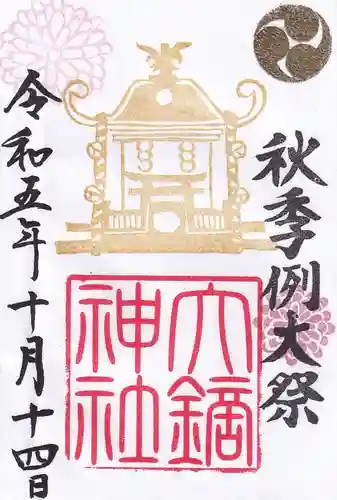 秋季例大祭
大鏑
神社
令和五年十月十四日